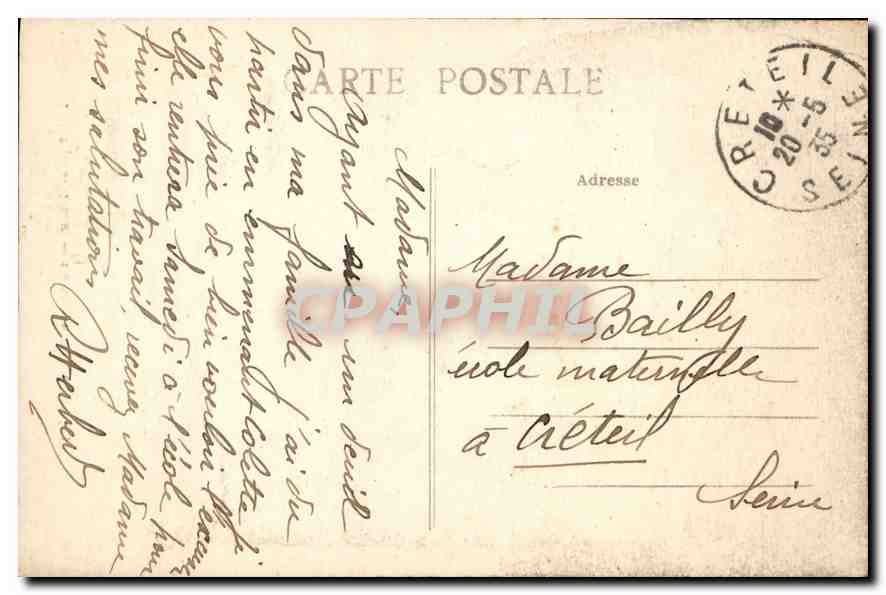 CARTE POSTALE
Adresse
CRETEIL
10 *
20 -5
35
SEINE
Madame
Bailly
école maternelle
à Créteil
Seine
Madame,
Ayant eu un deuil
dans ma famille j'ai du
partir en emmenant Colette je
vous prie de bien vouloir l'excuser
elle rentrera Samedi à l'école pour
finir son travail, recevez Madame
mes salutations
CPAPHIL